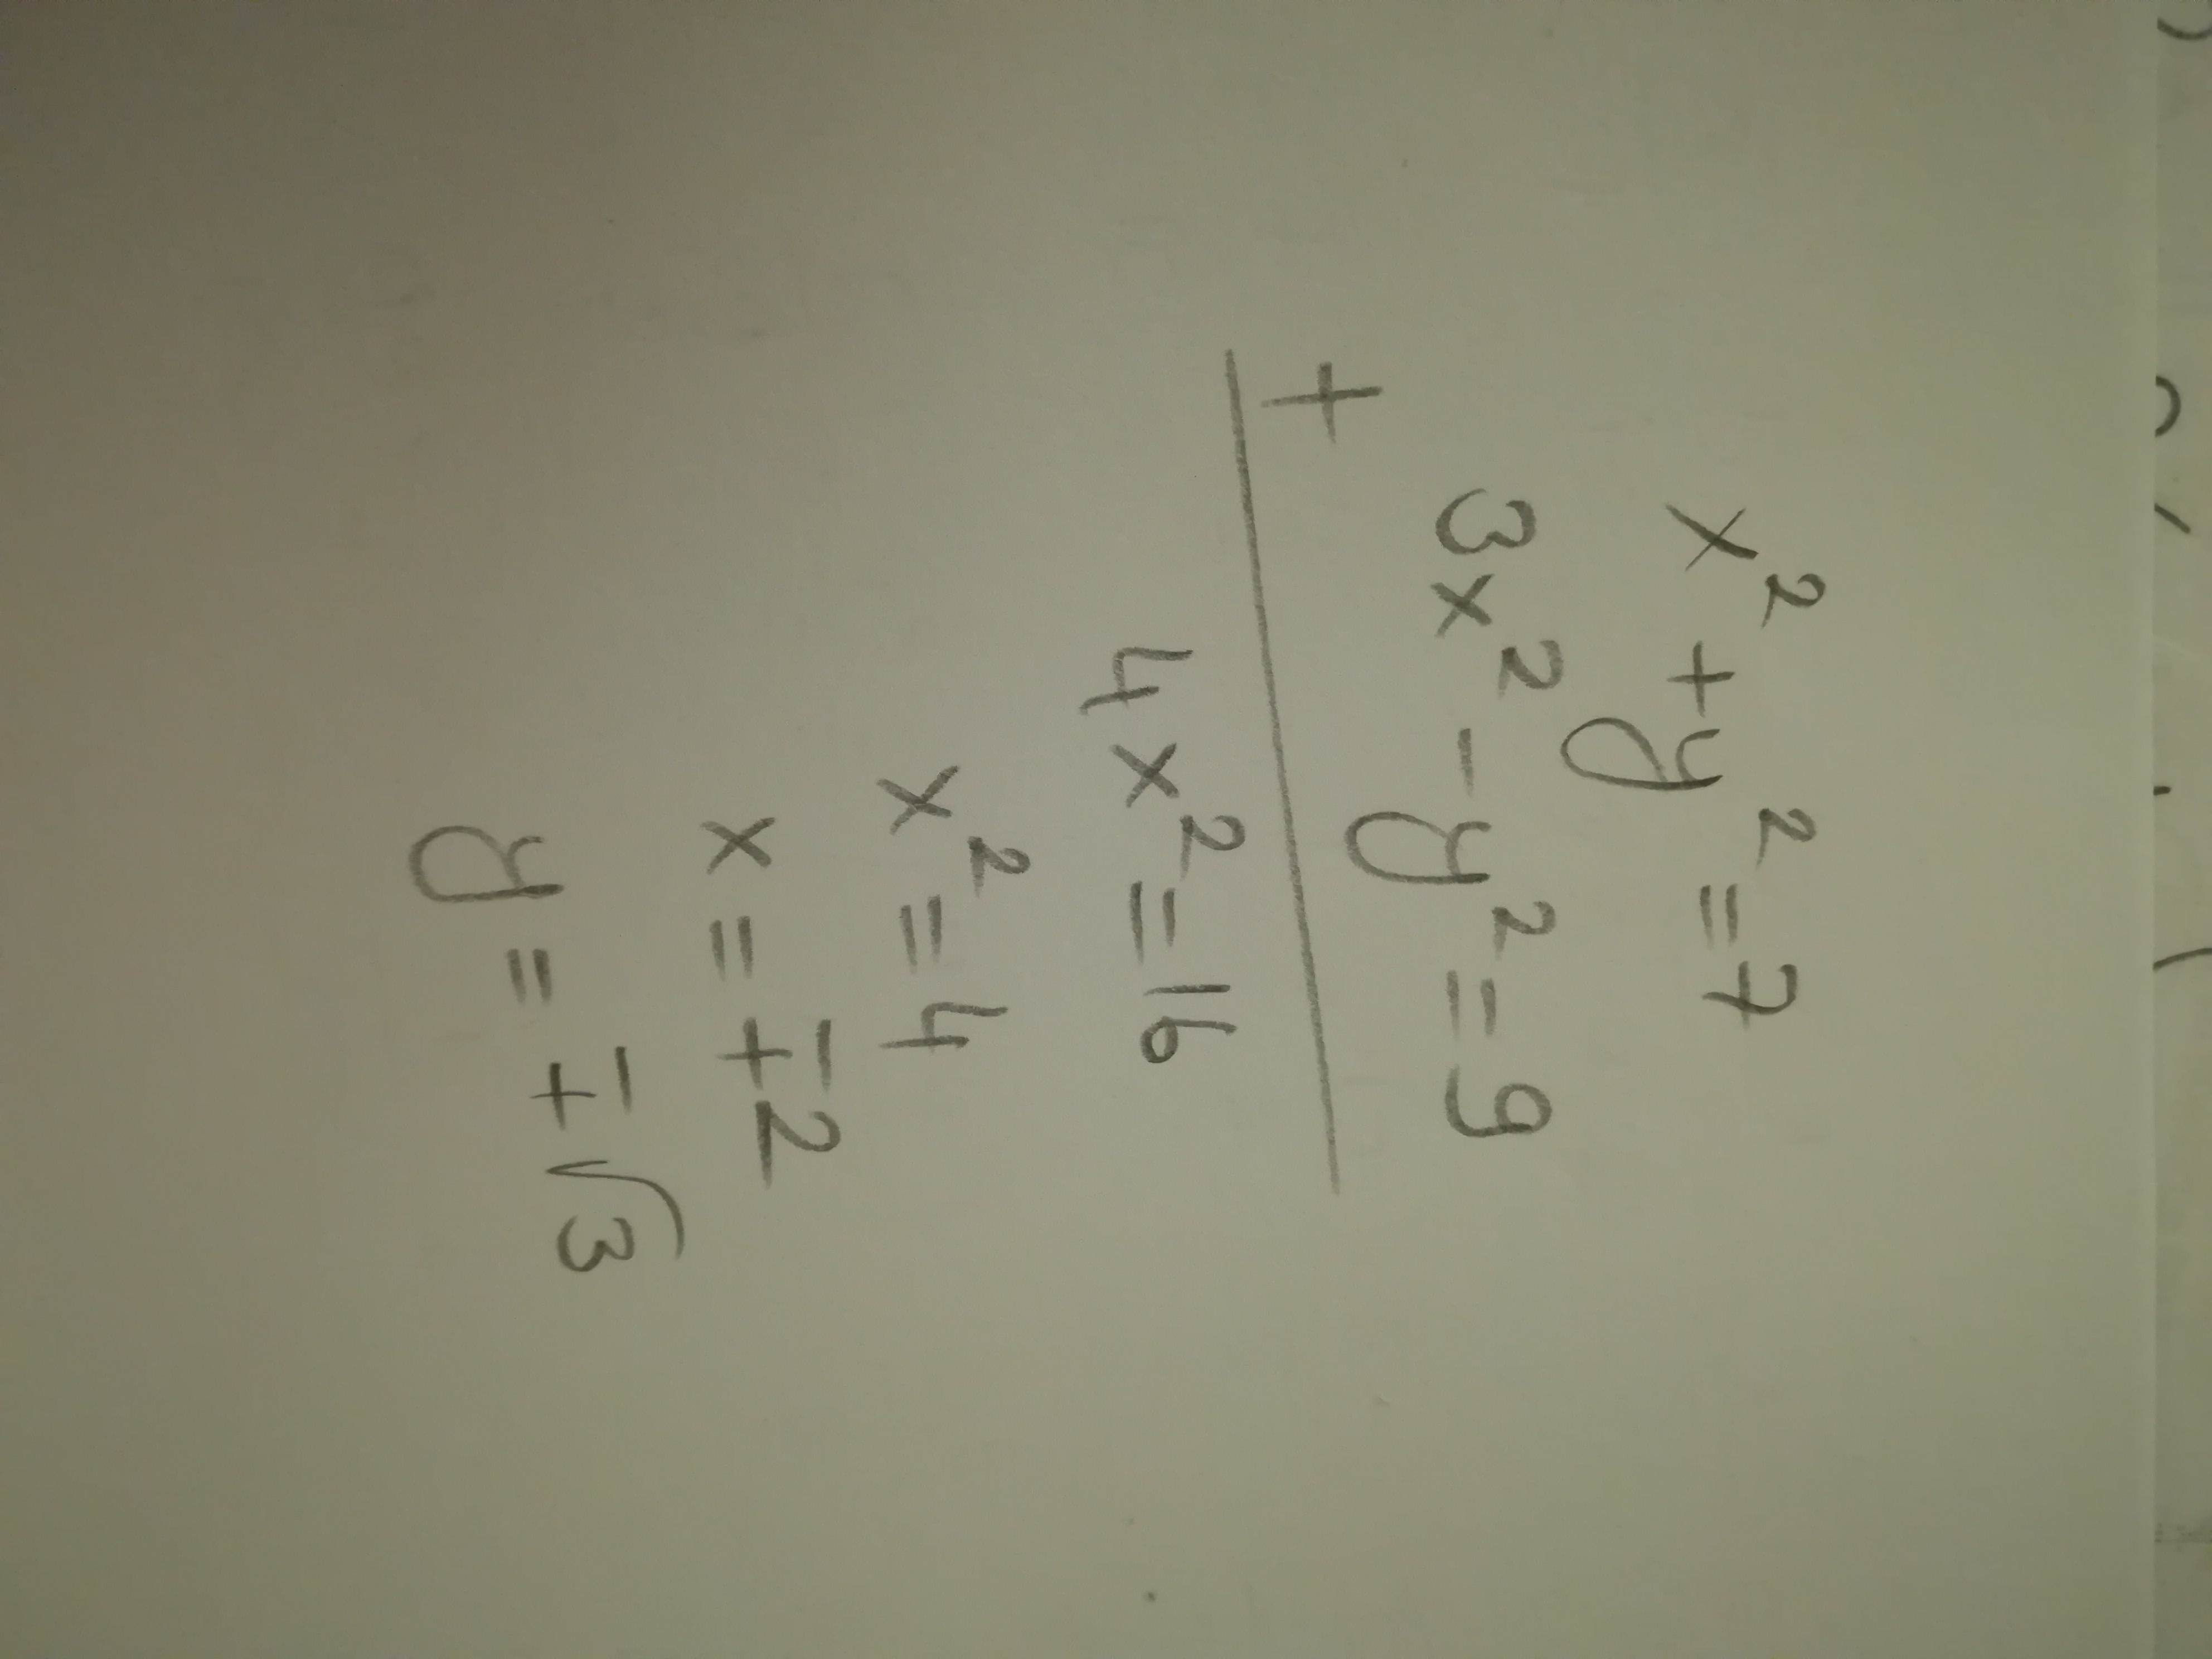 x² + y² = 7
3x² - y² = 9
+
4x² = 16
x² = 4
x = ∓2
y = ∓√3